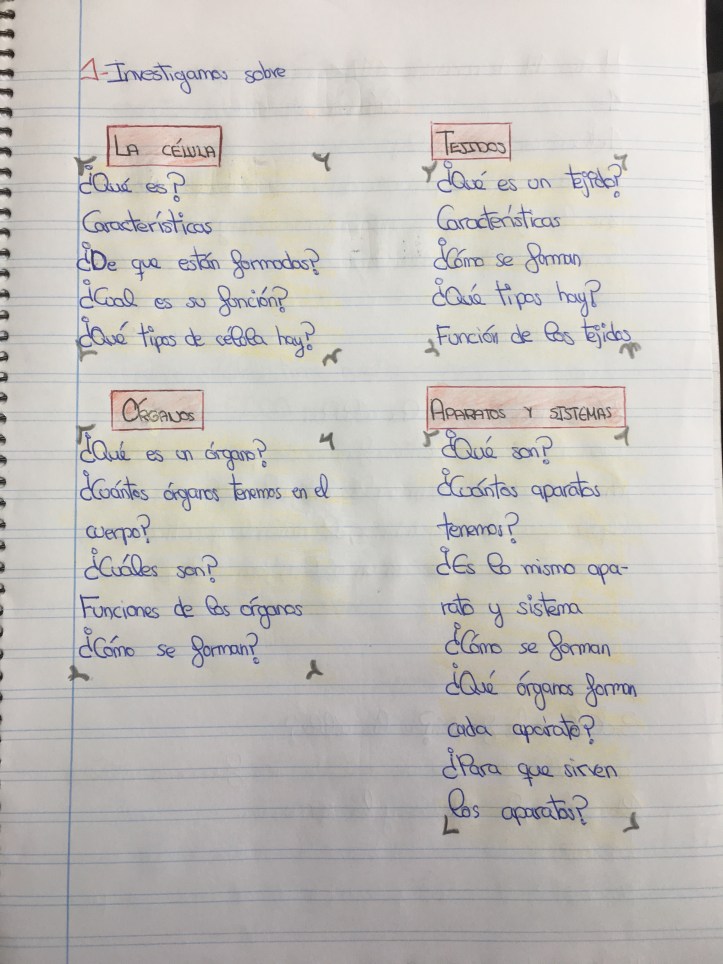 1- Investigamos sobre
LA CÉLULA
¿Qué es?
Características
¿De que están formadas?
¿Cual es su función?
¿Qué tipos de celula hay?
TEJIDOS
¿Qué es un tejido?
Características
¿Cómo se forman
¿Qué tipos hay?
Función de los tejidos
ÓRGANOS
¿Qué es un órgano?
¿Cuántos órganos tenemos en el
cuerpo?
¿Cuáles son?
Funciones de los órganos
¿Cómo se forman?
APARATOS Y SISTEMAS
¿Qué son?
¿Cuántos aparatos
tenemos?
¿Es lo mismo apa-
rato y sistema
¿Cómo se forman
¿Qué órganos forman
cada aparato?
¿Para que sirven
los aparatos?